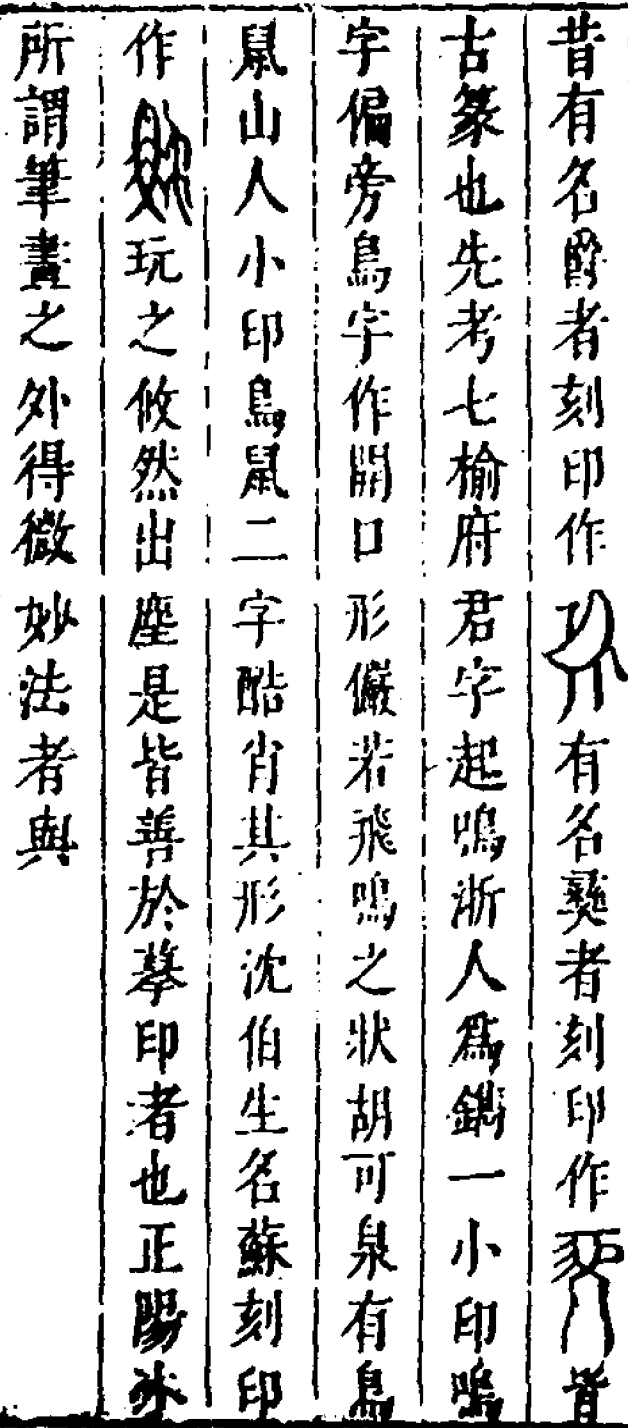 昔有名爵者刻印作有名彝者刻印作皆
古篆也先考七榆府君字起鳴浙人爲鐫一小印鳴
字偏旁鳥字作開口形儼若飛鳴之狀胡可泉有鳥
鼠山人小印鳥鼠二字酷肖其形沈伯生名蘇刻印
作玩之攸然出塵是皆善於摹印者也正陽氷
所謂筆畫之外得微妙法者與